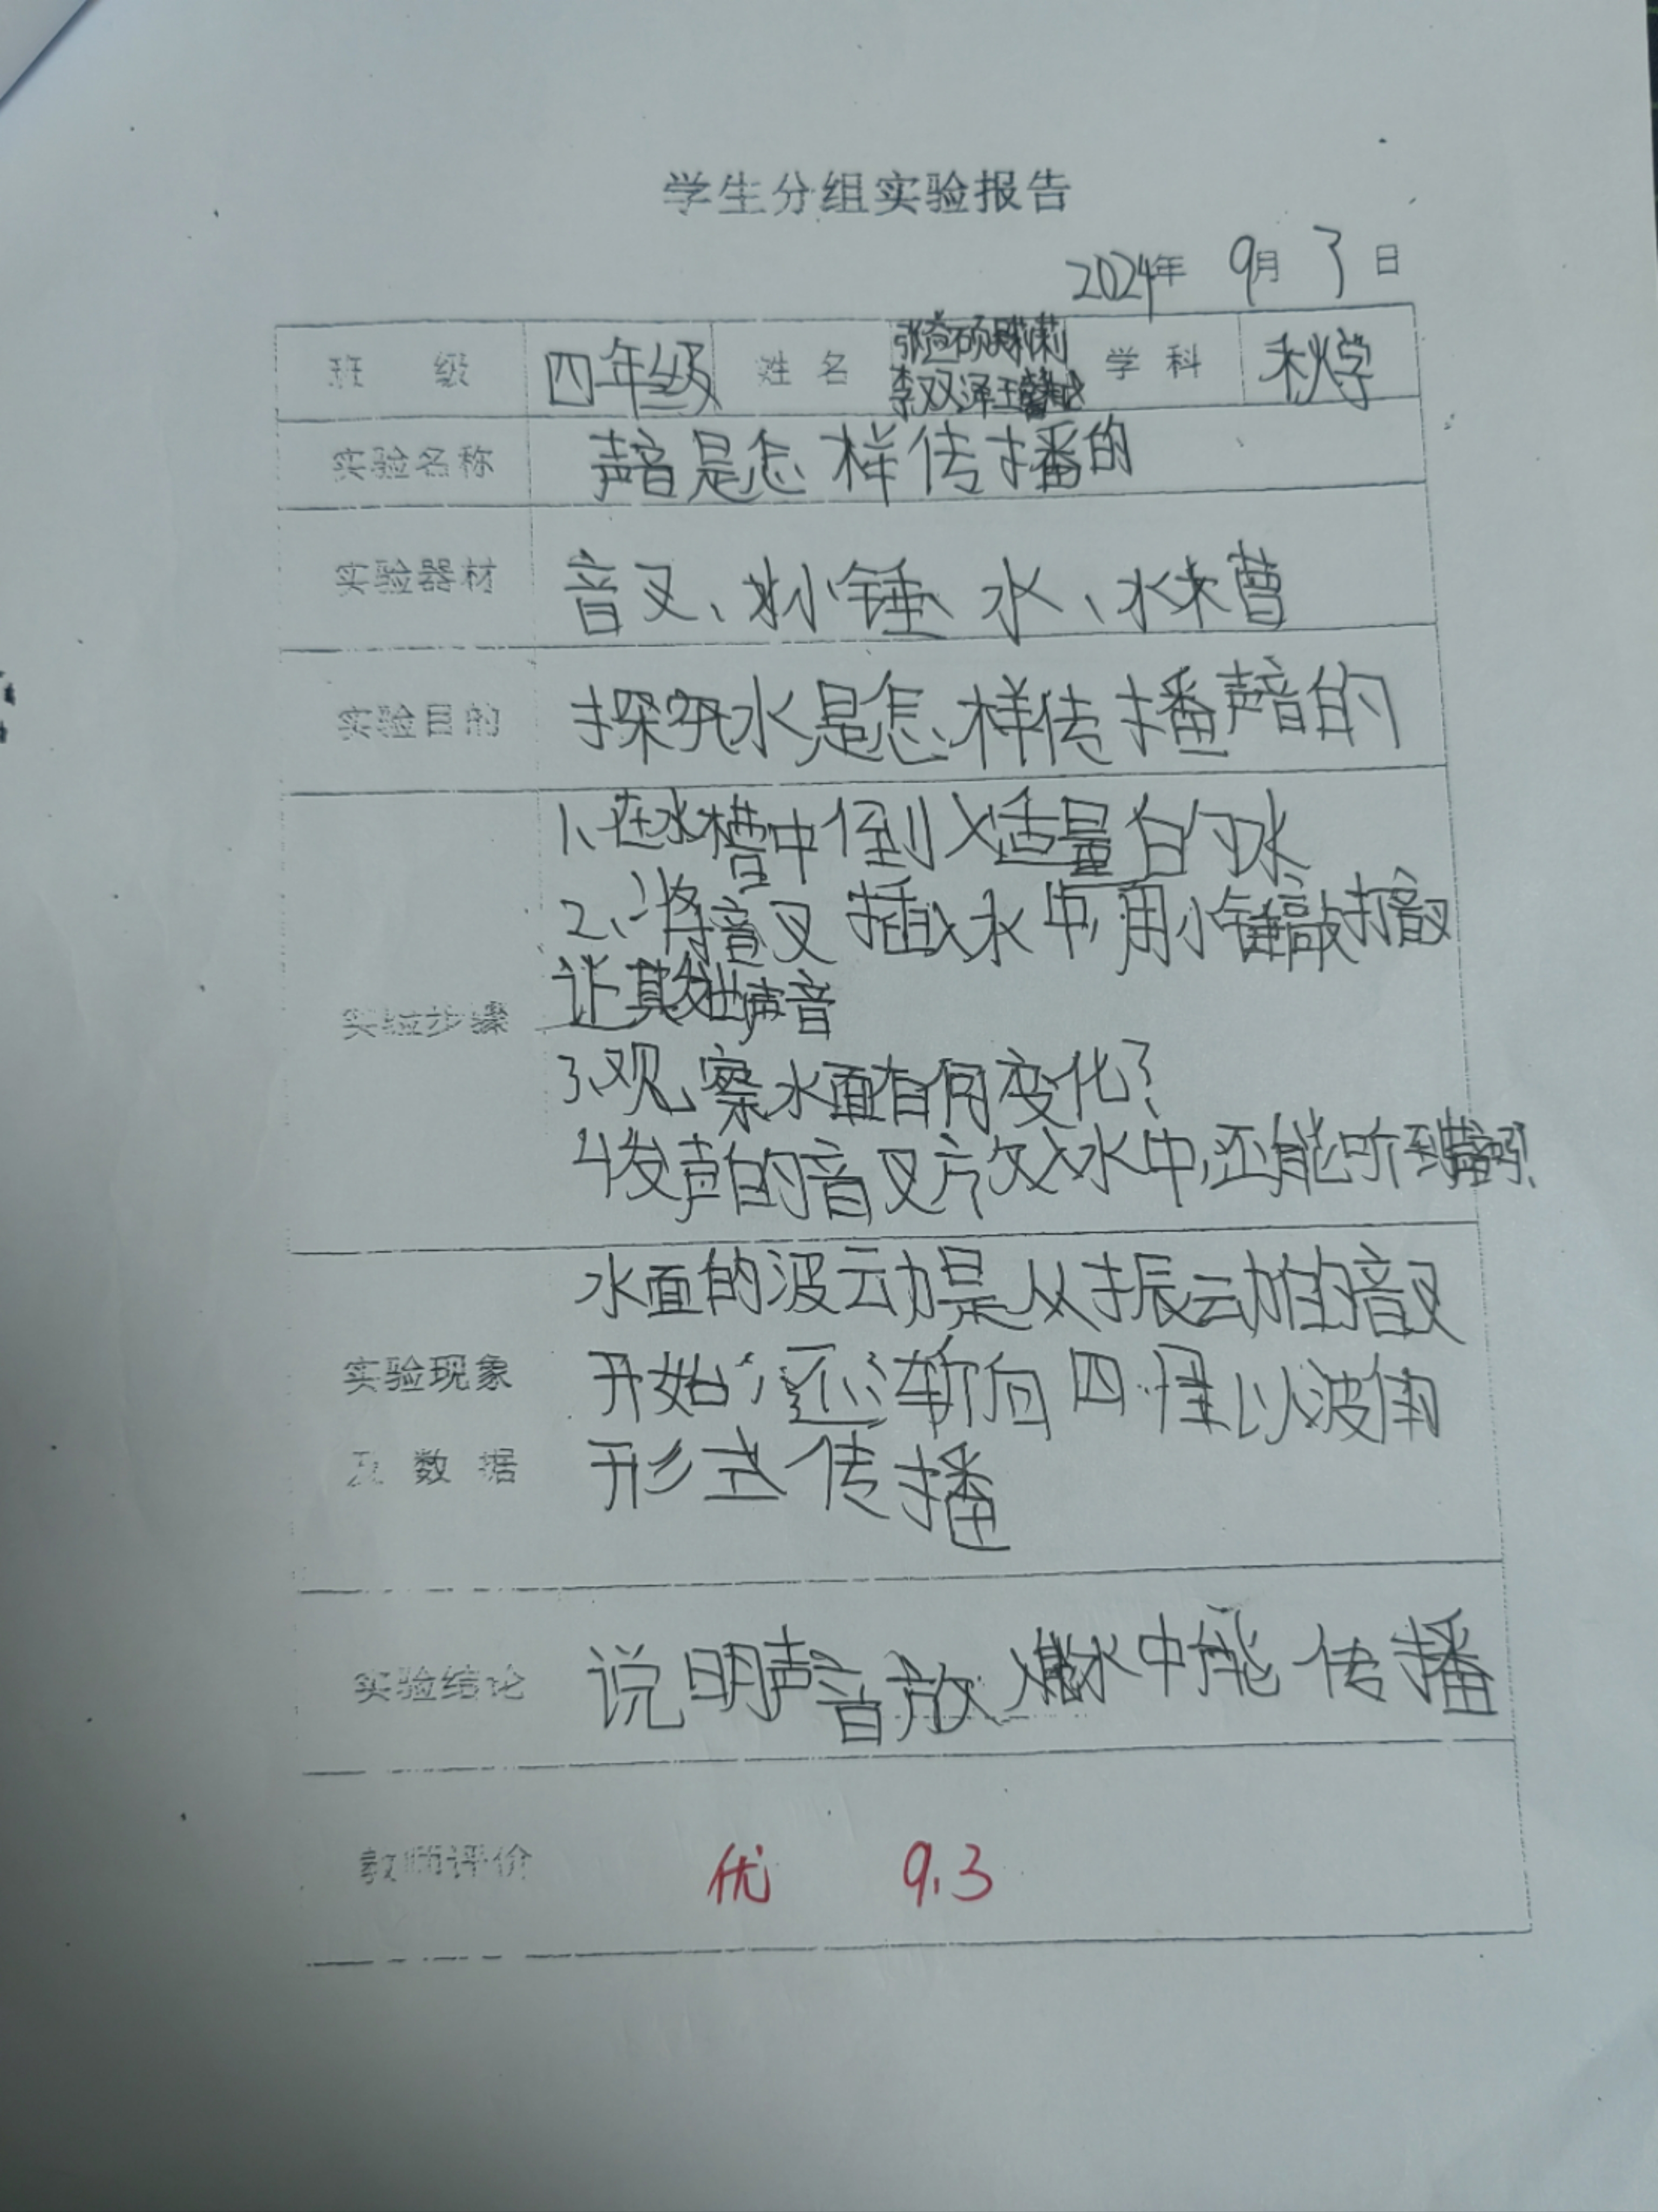 学生分组实验报告
2024年 9月 3日
班 级 四年级 姓 名 学 科 科学
李双泽王
实验名称 声音是怎样传播的
实验器材 音叉、小锤 水、水槽
实验目的 探究水是怎样传播声音的
1、在水槽中倒入适量的水
2、将音叉插入水中,用小锤敲打音叉
实验步骤 让其发出声音
3、观察水面有何变化?
4发声的音叉放入水中,还能听到声音吗?
水面的波动是从振动的音叉
实验现象 开始,逐渐向四周以波的
及 数 据 形式传播
实验结论 说明声音放入水中能传播
教师评价 优 9.3